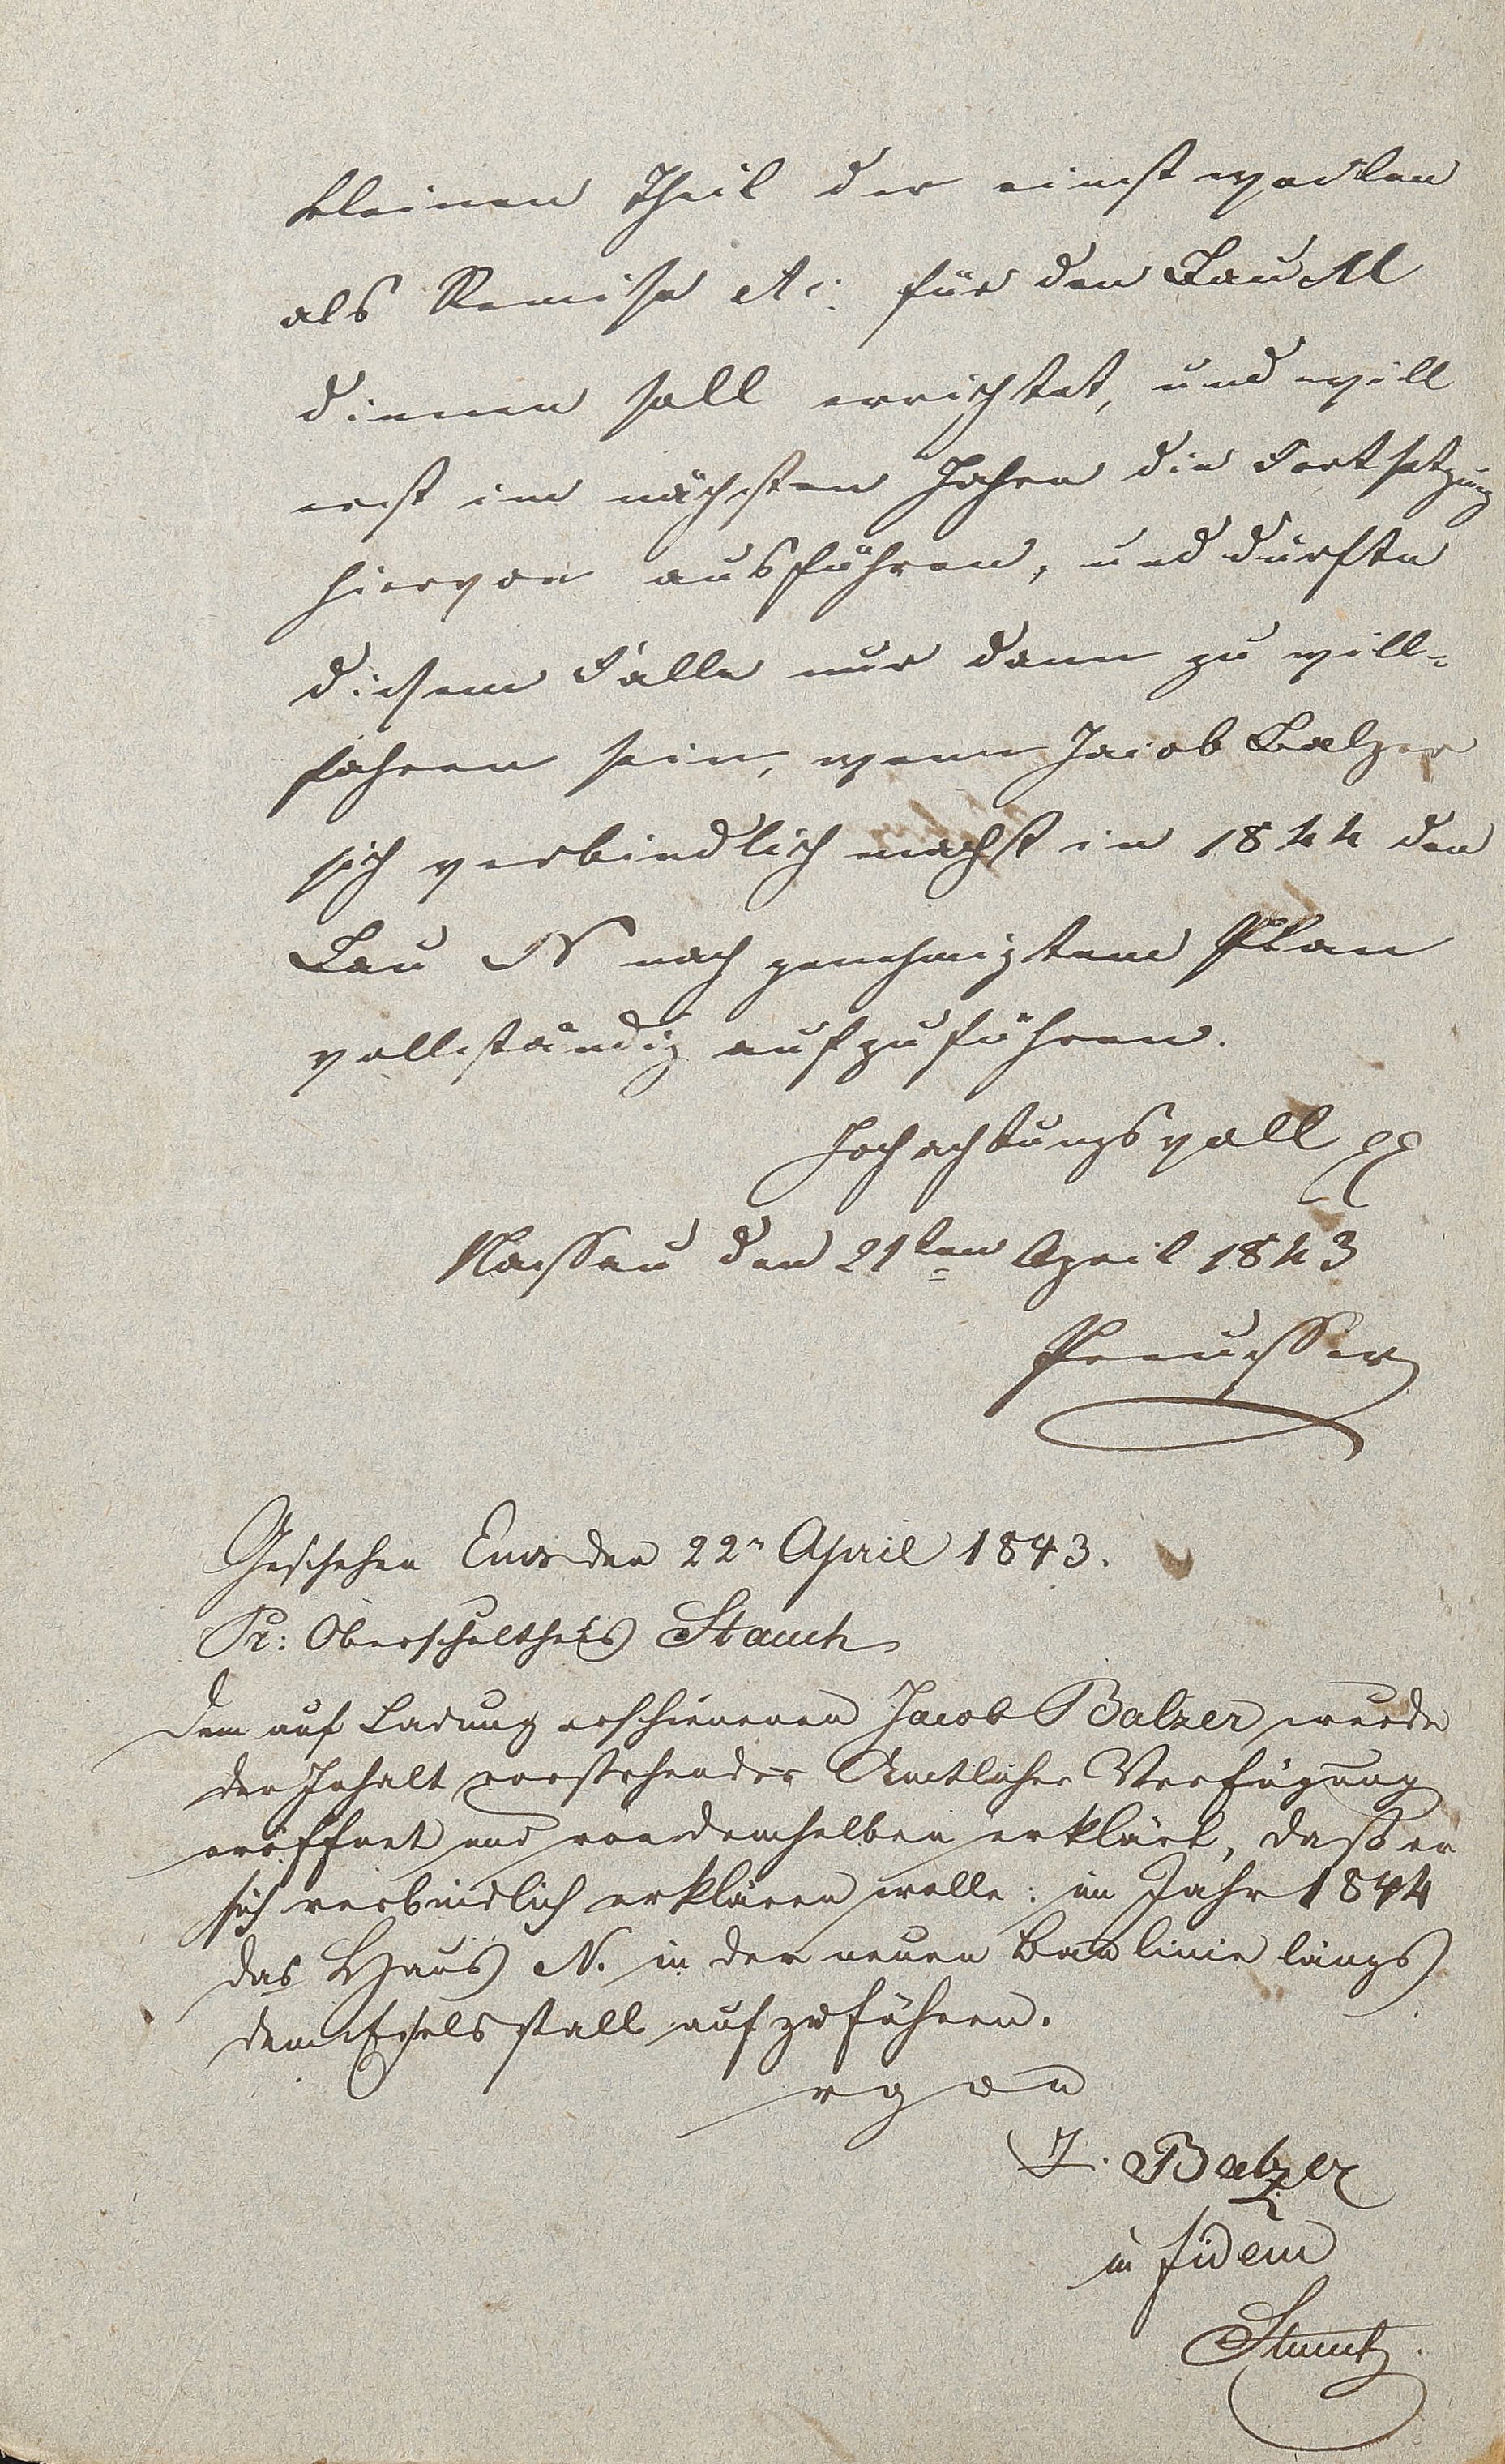 kleinen Theil der einstweilen
als Remise etc: für den Bau M
dienen soll errichtet, und will
erst im nächsten Jahre die Fortsetzung
hiervon ausführen, und dürfte
diesem Falle nur dann zu will-
fahren sein, wenn Jacob Balzer
sich verbindlich macht in 1844 den
Bau N nach genehmigtem Plan
vollständig aufzuführen.
Hochachtungsvoll
Nassau den 21ten April 1843
Preusser
Geschehen Ems den 22n April 1843.
Pr: Oberschultheis Stauch
Dem auf Ladung erschienenen Jacob Balzer wurde
der Inhalt vorstehender Amtlicher Verfügung
eröffnet und von demselben erklärt, daß er
sich verbindlich erklären wolle: im Jahr 1844
das Haus N. in der neuen Baulinie längs
dem Eselsstall aufzuführen.
J. Balzer
in fidem